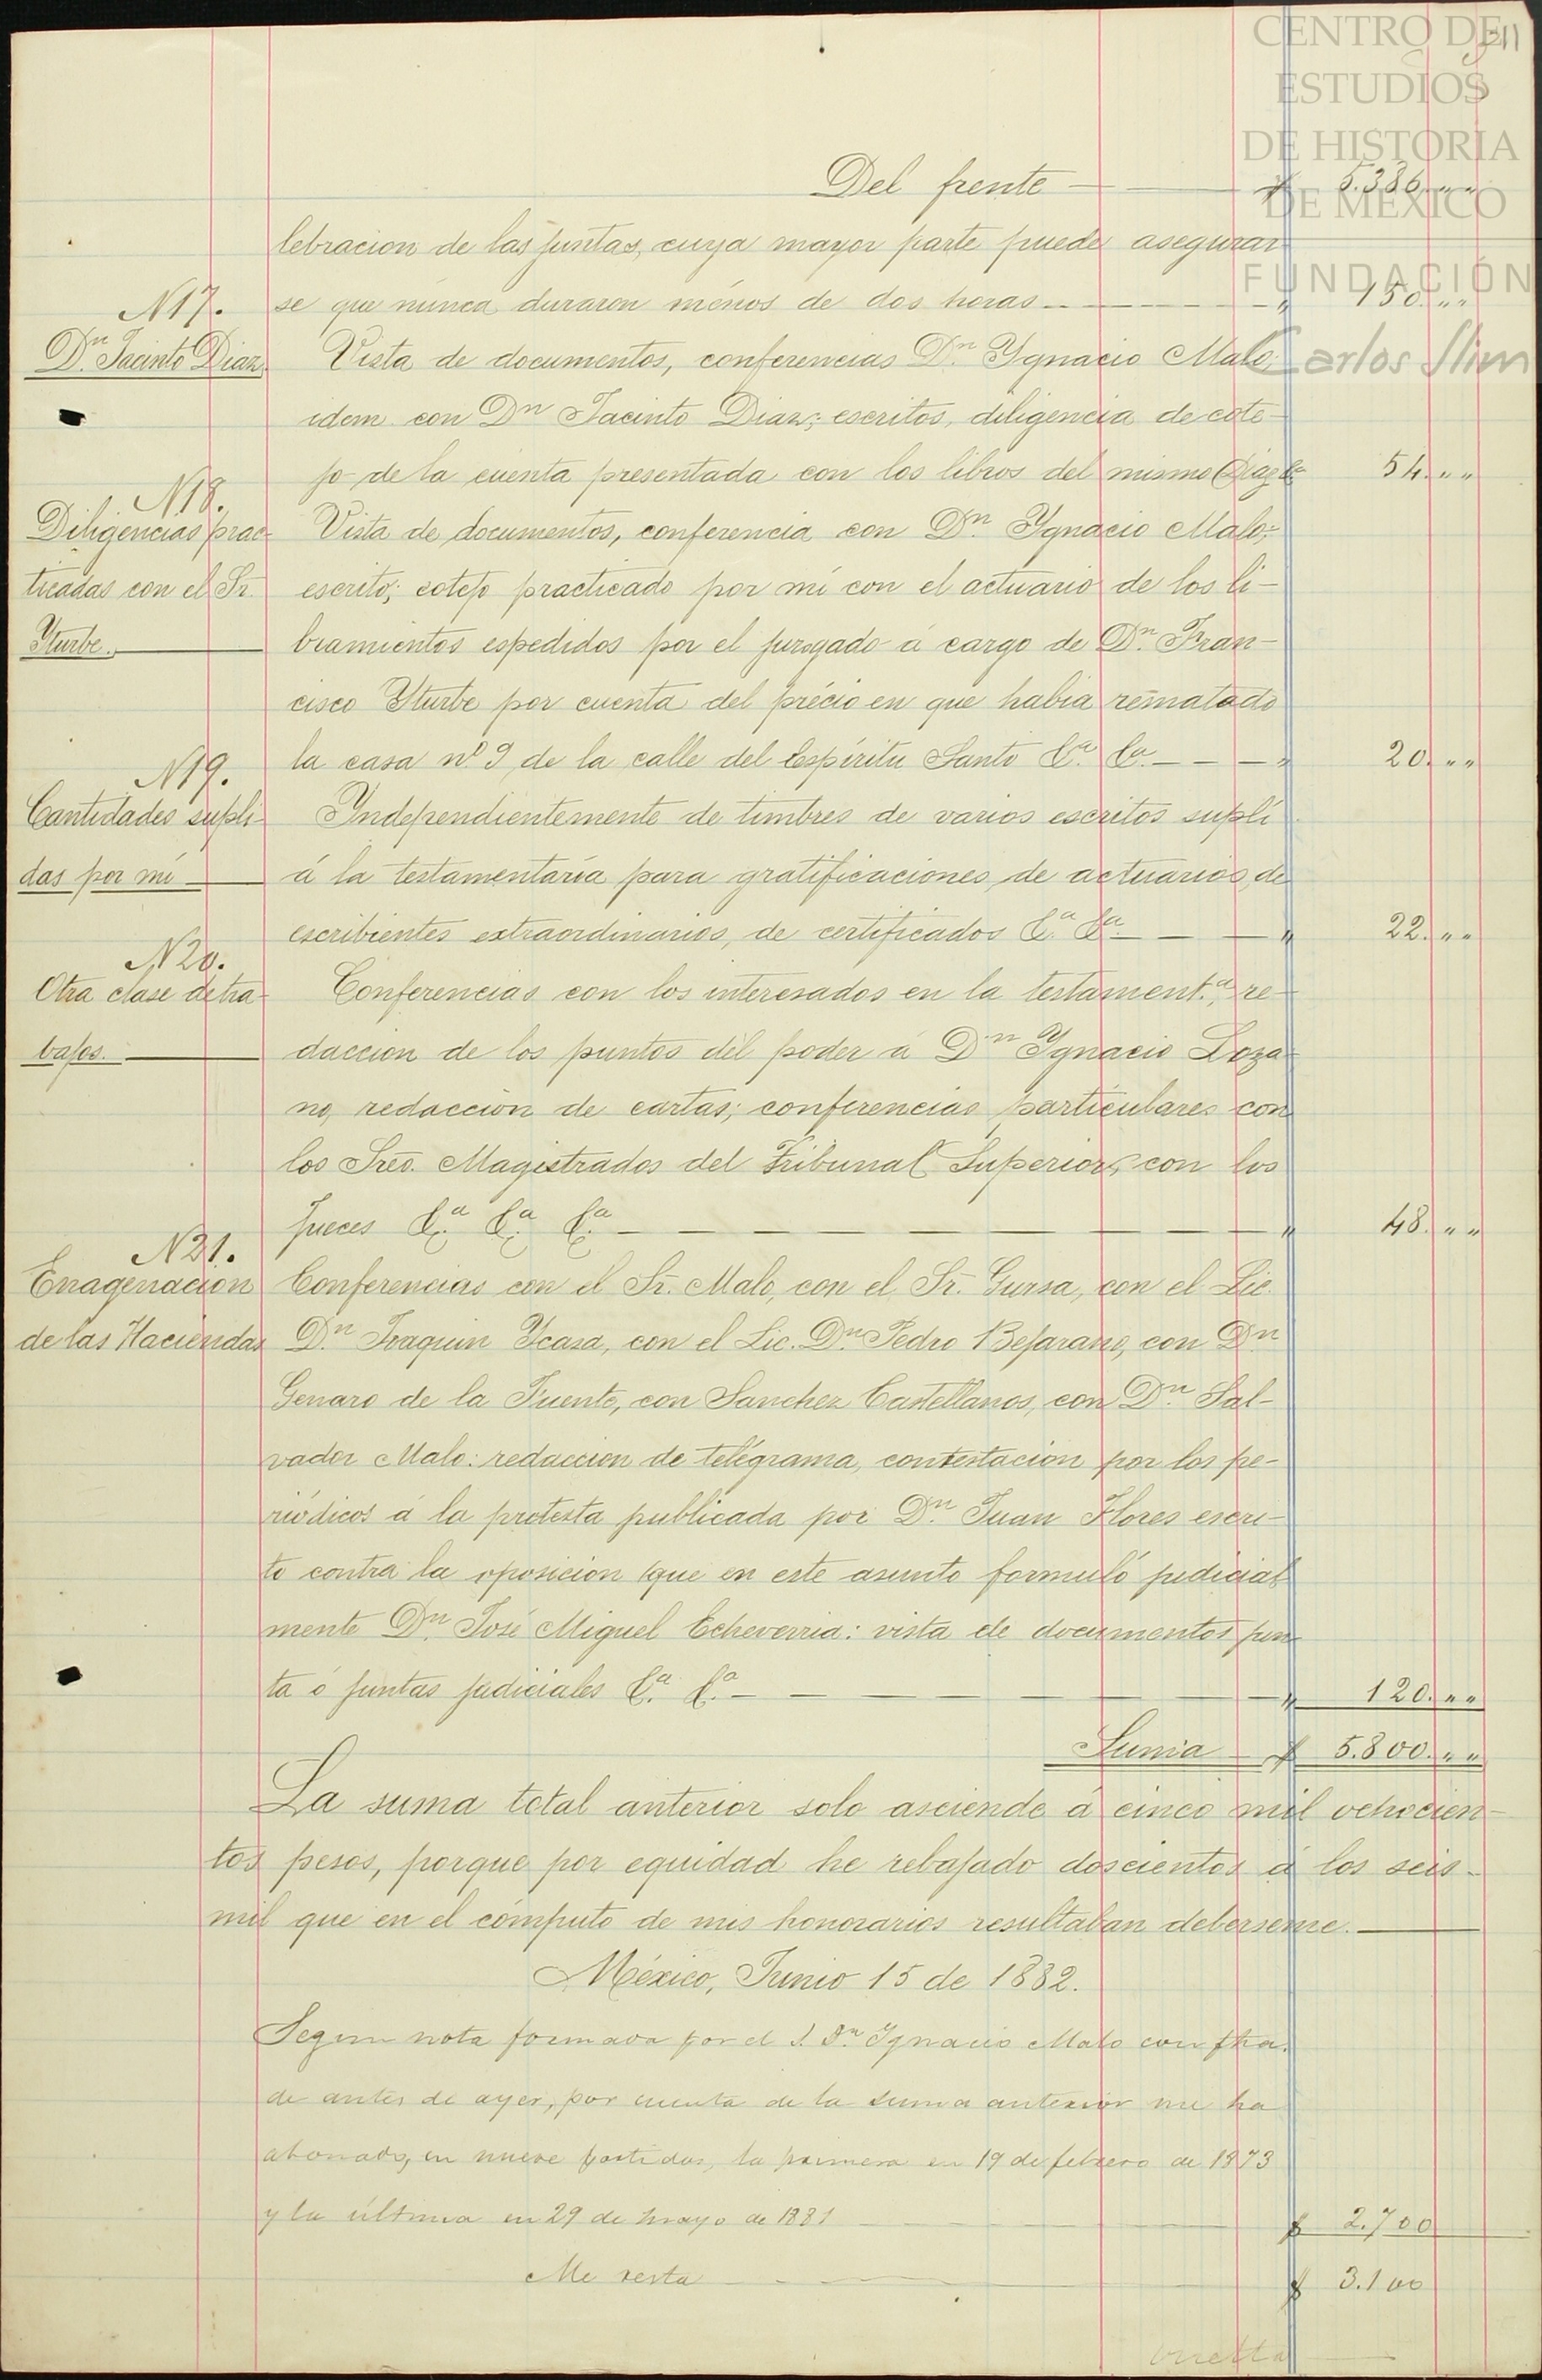 CENTRO DE
ESTUDIOS
DE HISTORIA
DE MÉXICO
FUNDACIÓN
Carlos Slim
Del frente $ 5.386 „ „
lebracion de las juntas, cuya mayor parte puede asegurar
N17. se que núnca duraron ménos de dos horas „ 150. „ „
Dn. Jacinto Diaz Vista de documentos, conferencias Dn. Ygnacio Malo;
idem con Dn Jacinto Diaz; escritos, diligencia de cote-
jo de la cuenta presentada con los libros del mismo Diaz 54. „ „
N18.
Diligencias prac- Vista de documentos, conferencia con Dn. Ygnacio Malo;
ticadas con el Sr. escrito; cotejo practicado por mi con el actuario de los li-
Yturbe. bramientos espedidos por el juzgado á cargo de Dn. Fran-
cisco Yturbe por cuenta del précio en que habia rematado
N19. la casa nº 9 de la calle del Espíritu Santo &a. &a. „ 20. „ „
Cantidades supli- Yndependientemente de timbres de varios escritos suplí
das por mi á la testamentaría para gratificaciones de actuarios, de
escribientes extraordinarios, de certificados &a. &a. „ 22. „ „
N20.
Otra clase de tra- Conferencias con los interesados en la testament.a, re-
bajos. daccion de los puntos del poder á Dn Ygnacio Loza-
no, redaccion de cartas; conferencias particulares con
los Sres. Magistrados del Tribunal Superior, con los
Jueces &a. &a. &a. „ 48. „ „
N21.
Enagenacion Conferencias con el Sr. Malo, con el Sr. Gursa, con el Lic.
de las Haciendas Dn. Joaquin Ycaza, con el Lic. Dn. Pedro Bejarano, con Dn
Genaro de la Fuente, con Sanchez Castellanos, con Dn. Sal-
vador Malo: redaccion de telégrama, contestacion por los pe-
riódicos á la protesta publicada por Dn. Juan Flores escri-
to contra la oposicion que en este asunto formuló judicial
mente Dn. José Miguel Echeverria: vista de documentos jun
ta ó juntas judiciales &a. &a. „ 120. „ „
Suma $ 5.800. „ „
La suma total anterior solo asciende á cinco mil ochocien-
tos pesos, porque por equidad he rebajado doscientos á los seis-
mil que en el cómputo de mis honorarios resultaban deberseme.
México, Junio 15 de 1882.
Segun nota formada por el S. Dn. Ygnacio Malo con fha.
de antes de ayer, por cuenta de la suma anterior me ha
abonado, en nueve partidas, la primera en 19 de febrero de 1873
y la última en 29 de mayo de 1881 $ 2.700
Me resta $ 3.100
vuelta